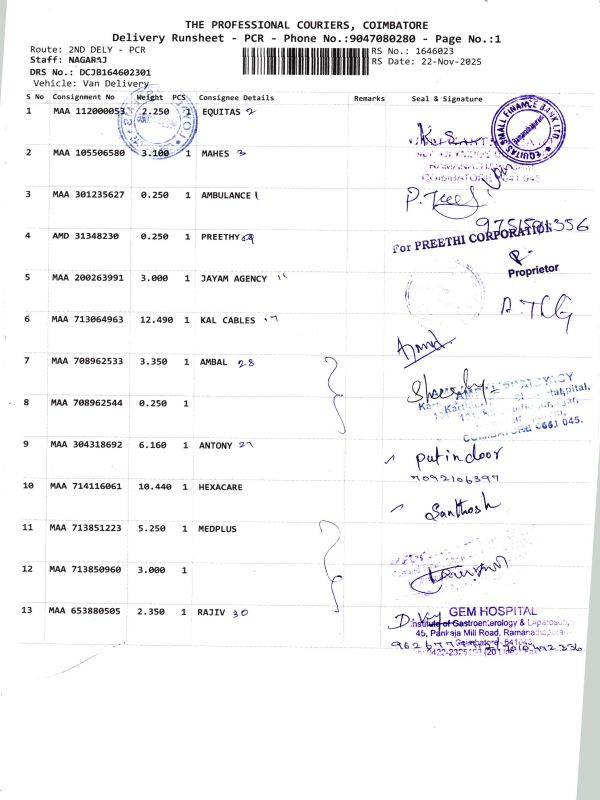 THE PROFESSIONAL COURIERS, COIMBATORE
Delivery Runsheet - PCR - Phone No.:9047080280 - Page No.:1
Route: 2ND DELY - PCR RS No.: 1646023
Staff: NAGARAJ RS Date: 22-Nov-2025
DRS No.: DCJB164602301
Vehicle: Van Delivery
S No Consignment No Weight PCS Consignee Details Remarks Seal & Signature
1 MAA 112000053 2.250 1 EQUITAS 2
EQUITAS SMALL FINANCE BANK LTD.
2 MAA 105506580 3.100 1 MAHES 3
COIMBATORE 641 045.
3 MAA 301235627 0.250 1 AMBULANCE 1
4 AMD 31348230 0.250 1 PREETHY
For PREETHI CORPORATION
Proprietor
5 MAA 200263991 3.000 1 JAYAM AGENCY 11
6 MAA 713064963 12.490 1 KAL CABLES 17
7 MAA 708962533 3.350 1 AMBAL 28
8 MAA 708962544 0.250 1
COIMBATORE 641 045.
9 MAA 304318692 6.160 1 ANTONY 27
put indoor
7092106397
10 MAA 714116061 10.440 1 HEXACARE
Santhosh
11 MAA 713851223 5.250 1 MEDPLUS
12 MAA 713850960 3.000 1
13 MAA 653880505 2.350 1 RAJIV 30
GEM HOSPITAL
Institute of Gastroenterology & Laparoscopy
45, Pankaja Mill Road, Ramanathapuram
Coimbatore - 641045